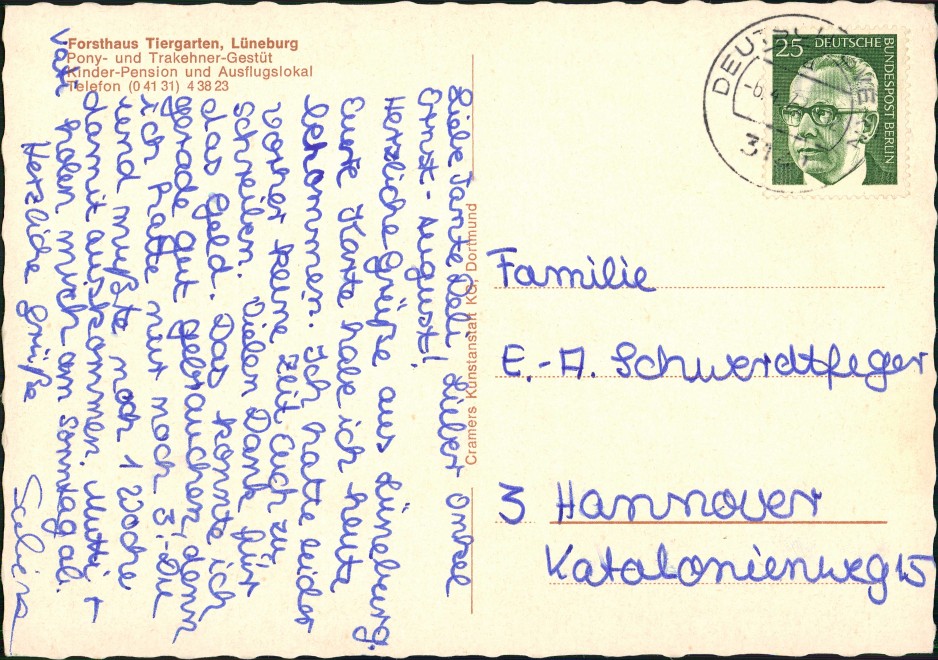 Forsthaus Tiergarten, Lüneburg
Pony- und Trakehner-Gestüt
Kinder-Pension und Ausflugslokal
Telefon (0 41 31) 4 38 23
Liebe Tante Deli Lieber Onkel
Ernst-August!
Herzliche Grüße aus Lüneburg.
Eure Karte habe ich heute
bekommen. Ich hatte leider
vorher keine Zeit Euch zu
schreiben. Vielen Dank für
das Geld. Das konnte ich
gerade gut gebrauchen, denn
ich hatte nur noch 3,- DM
und mußte noch 1 Woche
damit auskommen. Mutti +
Vati holen mich am Sonntag ab.
Herzliche Grüße
Sabina
Cramers Kunstanstalt KG, Dortmund
DEUTSCHE BUNDESPOST BERLIN
25
Familie
E.-A. Schwerdtfeger
3 Hannover
Katalonienweg 15